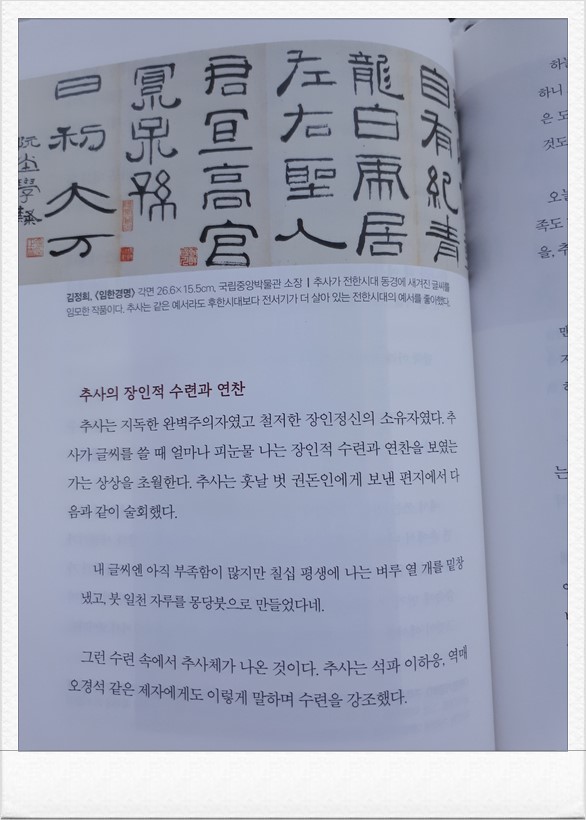 自有紀青
龍白虎居
左右聖人
君宜高官
孫
日利大万
阮堂學
김정희, 〈임한경명〉 각면 26.6×15.5cm, 국립중앙박물관 소장 | 추사가 전한시대 동경에 새겨진 글씨를
임모한 작품이다. 추사는 같은 예서라도 후한시대보다 전서기가 더 살아 있는 전한시대의 예서를 좋아했다.
추사의 장인적 수련과 연찬
추사는 지독한 완벽주의자였고 철저한 장인정신의 소유자였다. 추
사가 글씨를 쓸 때 얼마나 피눈물 나는 장인적 수련과 연찬을 보였는
가는 상상을 초월한다. 추사는 훗날 벗 권돈인에게 보낸 편지에서 다
음과 같이 술회했다.
내 글씨엔 아직 부족함이 많지만 칠십 평생에 나는 벼루 열 개를 밑창
냈고, 붓 일천 자루를 몽당붓으로 만들었다네.
그런 수련 속에서 추사체가 나온 것이다. 추사는 석파 이하응, 역매
오경석 같은 제자에게도 이렇게 말하며 수련을 강조했다.
하니
은 도
것도
족도
는